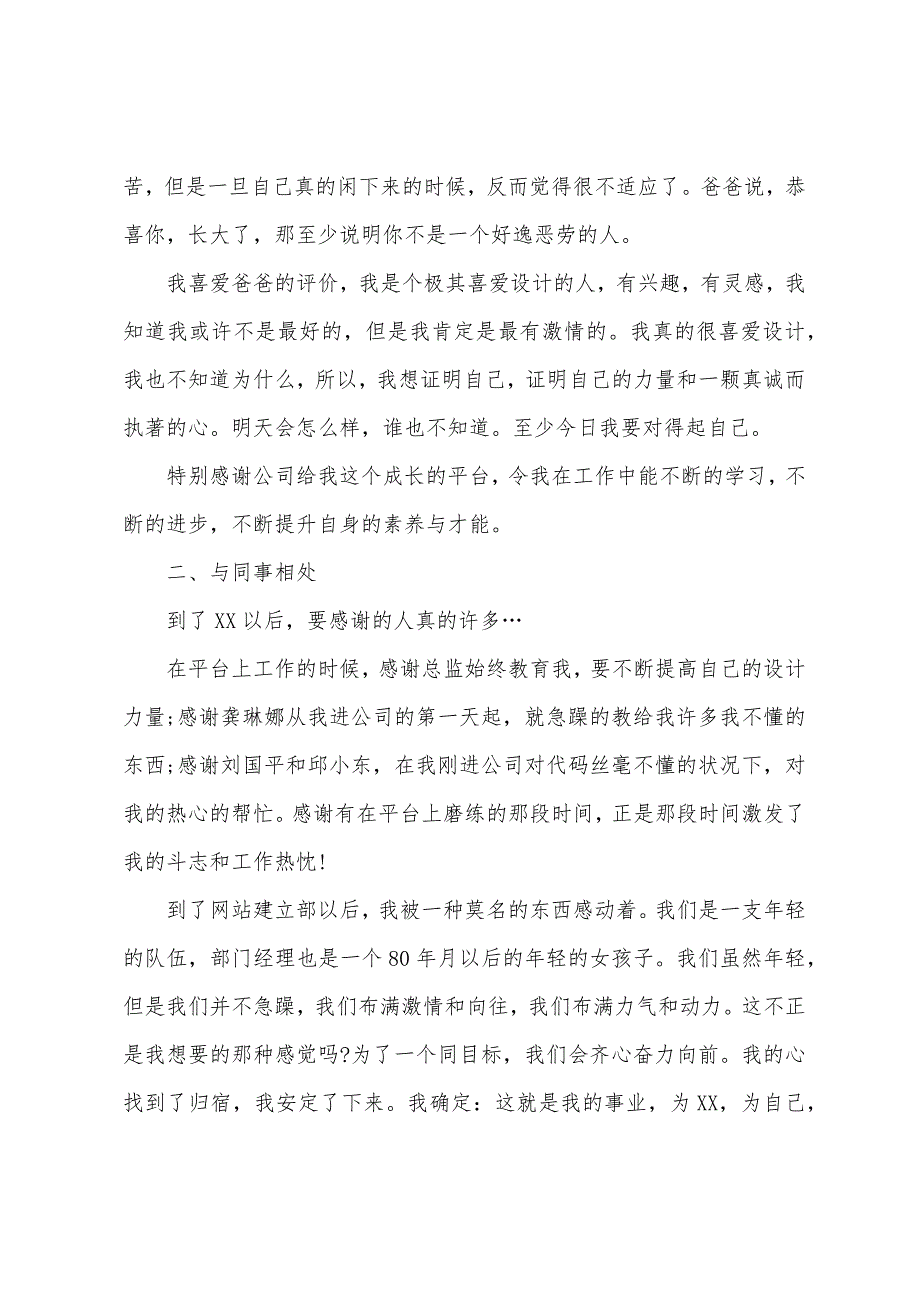 苦，但是一旦自己真的闲下来的时候，反而觉得很不适应了。爸爸说，恭
喜你，长大了，那至少说明你不是一个好逸恶劳的人。
我喜爱爸爸的评价，我是个极其喜爱设计的人，有兴趣，有灵感，我
知道我或许不是最好的，但是我肯定是最有激情的。我真的很喜爱设计，
我也不知道为什么，所以，我想证明自己，证明自己的力量和一颗真诚而
执著的心。明天会怎么样，谁也不知道。至少今日我要对得起自己。
特别感谢公司给我这个成长的平台，令我在工作中能不断的学习，不
断的进步，不断提升自身的素养与才能。
二、与同事相处
到了 XX 以后，要感谢的人真的许多…
在平台上工作的时候，感谢总监始终教育我，要不断提高自己的设计
力量;感谢龚琳娜从我进公司的第一天起，就急躁的教给我许多我不懂的
东西;感谢刘国平和邱小东，在我刚进公司对代码丝毫不懂的状况下，对
我的热心的帮忙。感谢有在平台上磨练的那段时间，正是那段时间激发了
我的斗志和工作热忱!
到了网站建立部以后，我被一种莫名的东西感动着。我们是一支年轻
的队伍，部门经理也是一个 80 年月以后的年轻的女孩子。我们虽然年轻，
但是我们并不急躁，我们布满激情和向往，我们布满力气和动力。这不正
是我想要的那种感觉吗?为了一个同目标，我们会齐心奋力向前。我的心
找到了归宿，我安定了下来。我确定：这就是我的事业，为 XX，为自己，